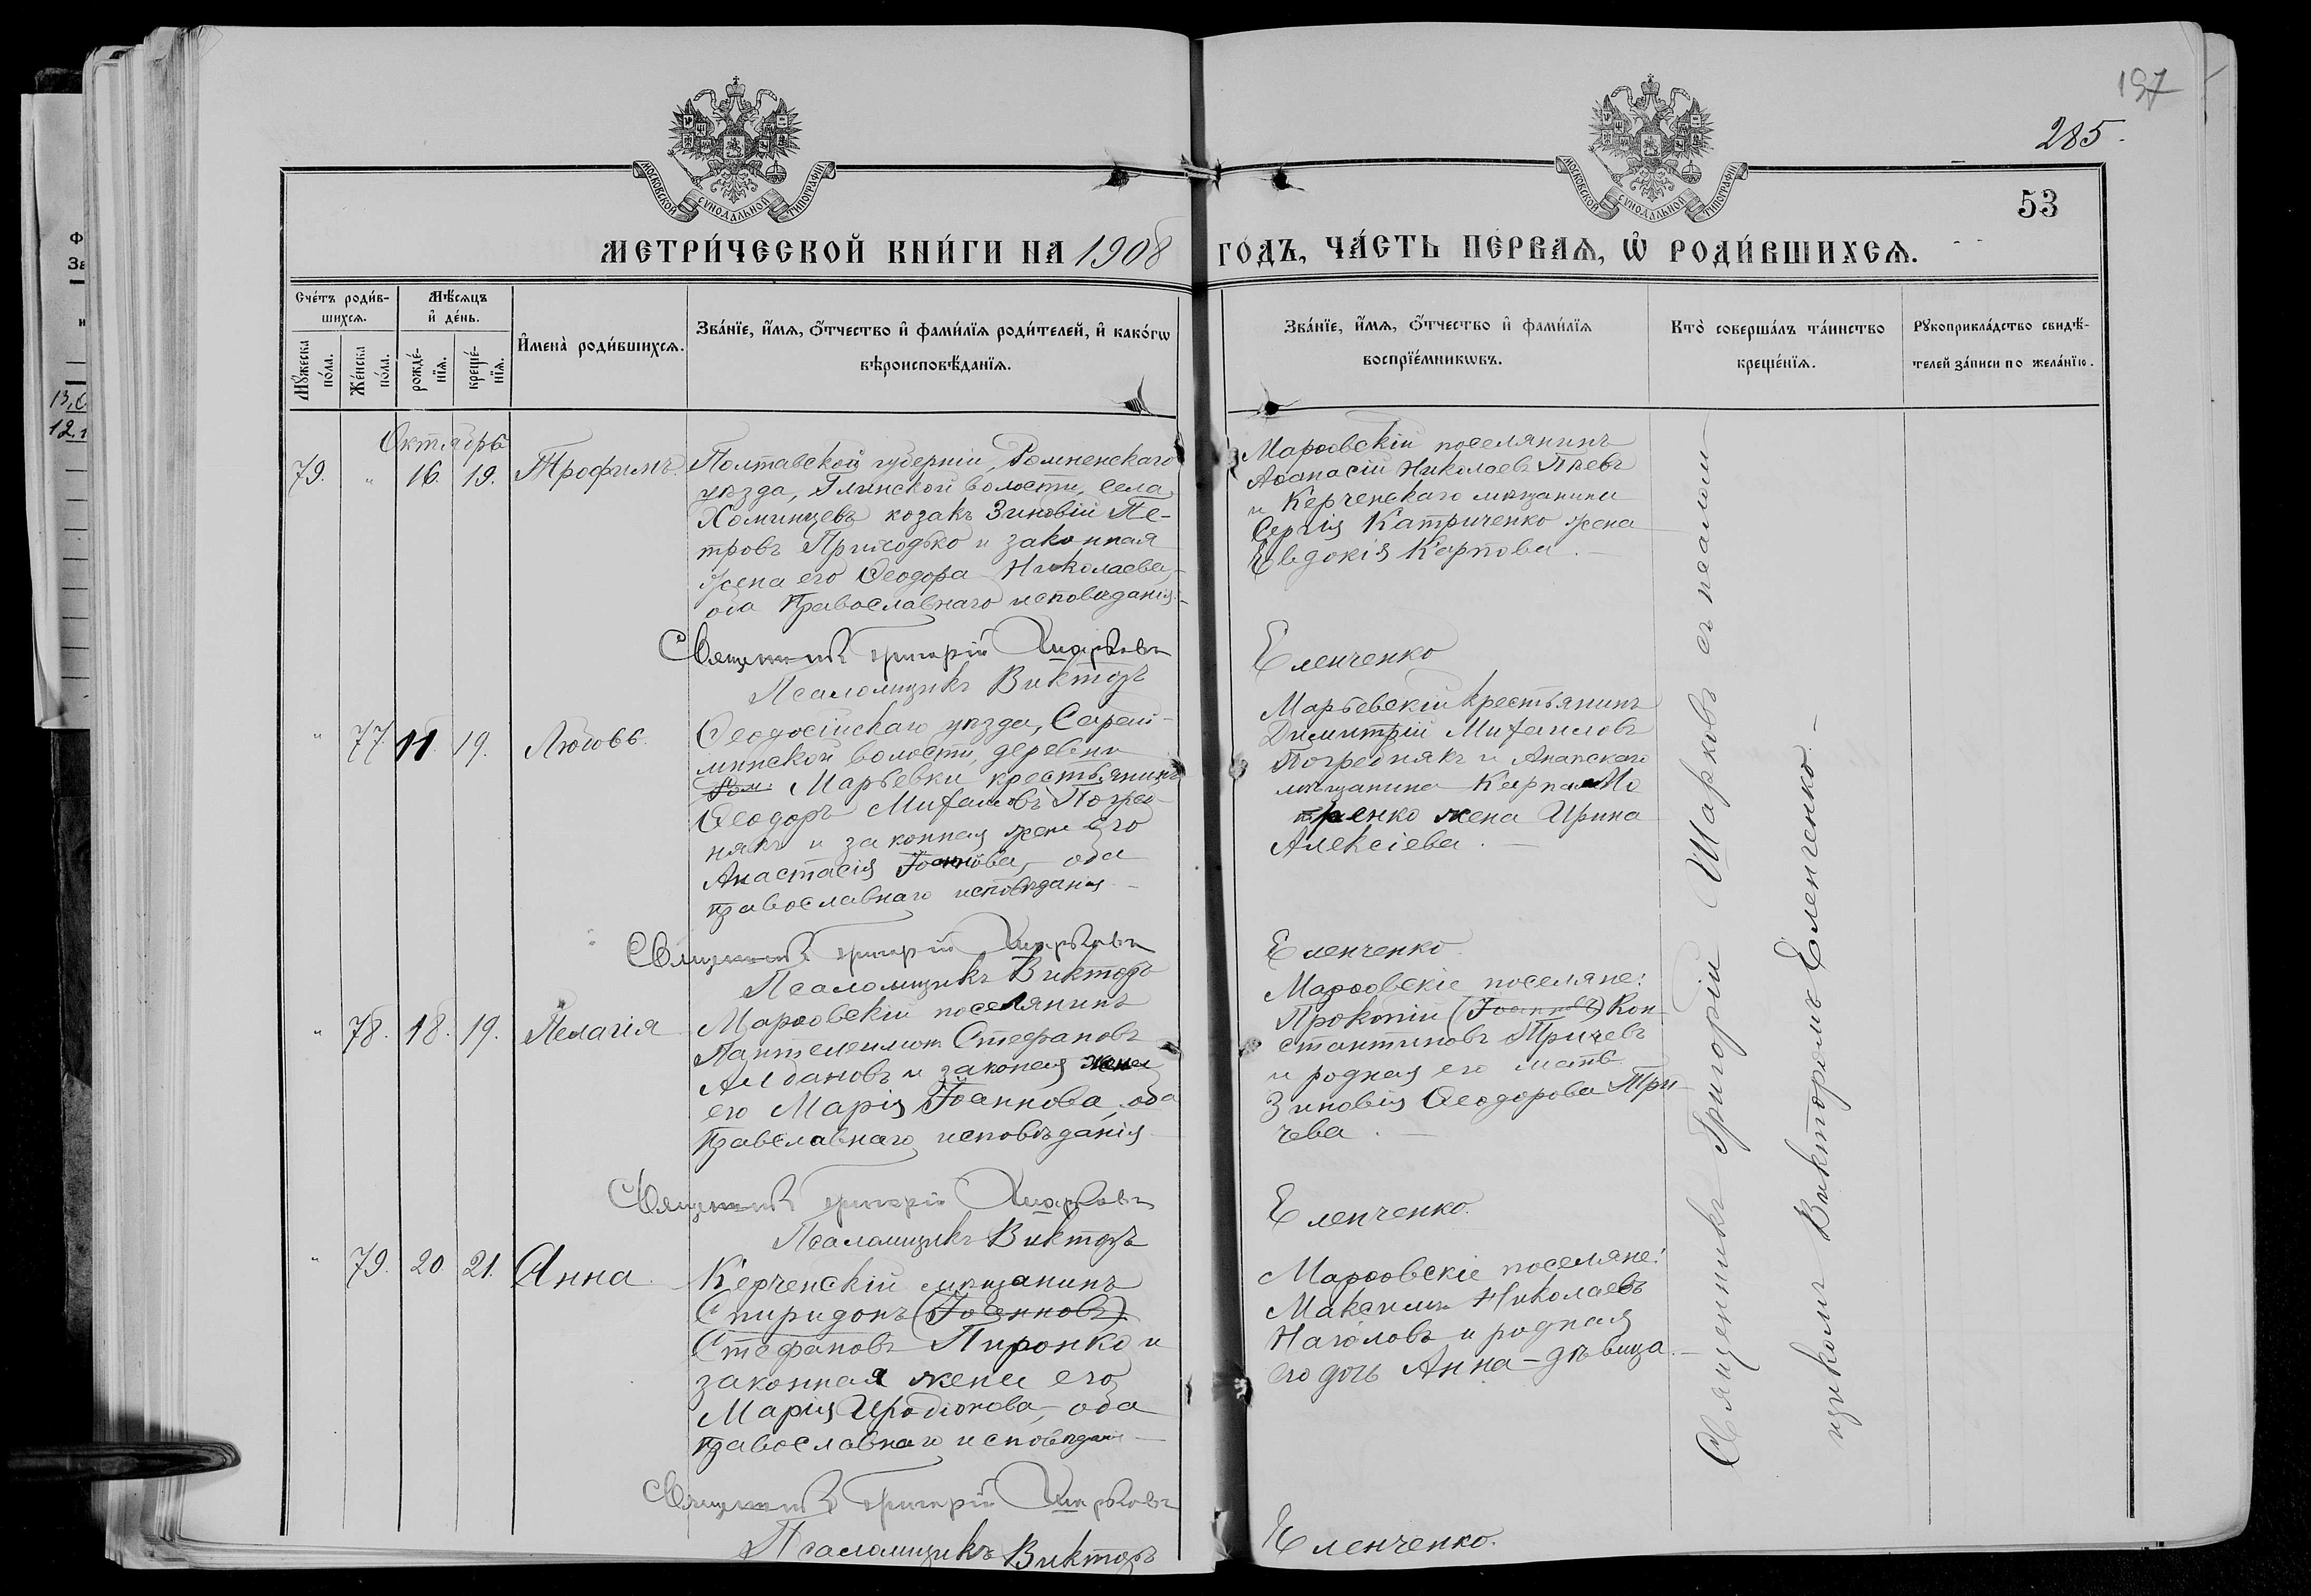 197
285.
53
МОСКОВСКОЙ СУНОДАЛЬНОЙ ТИПОГРАФІИ
МОСКОВСКОЙ СУНОДАЛЬНОЙ ТИПОГРАФІИ
МЕТРИ́ЧЕСКОЙ КНИ́ГИ НА 1908 ГО́ДЪ, ЧА́СТЬ ПЕ́РВАѦ, Ѡ РОДИ́ВШИХСѦ.
Сче́тъ роди́в-
шихсѧ.
Мꙋ́жеска
по́ла.
Же́нска
по́ла.
Мѣ́сѧцъ
и де́нь.
рожде́-
нїѧ.
креще́-
нїѧ.
Имена̀ роди́вшихсѧ.
Зва́нїе, и́мѧ, о́тчество и фами́лїѧ роди́телей, и како́гѡ
вѣроисповѣ́данїѧ.
Зва́нїе, и́мѧ, о́тчество и фами́лїѧ
воспрїе́мникѡвъ.
Кто̀ соверша́лъ та́инство
креще́нїѧ.
Рꙋкоприкла́дство свидѣ́-
телей за́писи по жела́нїю.
13,
12,
Октября
79. " 16. 19. Трофимъ.
Полтавской губерніи, Роменскаго
уѣзда, Глинской волости, села
Хоминцевъ козакъ Зиновій Пе-
тровъ Приходько и законная
жена его Ѳеодора Николаева,
оба Православнаго исповѣданія.
Священникъ Григорій Шарковъ
Псаломщикъ Викторъ
Марѳовскій поселянинъ
Аѳанасій Николаевъ
и Керченскаго мѣщанина
Сергія Катриченко жена
Евдокія Карпова.
Еленченко
" 77. 11. 19. Любовь.
Ѳеодосійскаго уѣзда, Сарай-
минской волости, деревни
Марьевки крестьянинъ
Ѳеодоръ Михаиловъ Погреб-
някъ и законная жена его
Анастасія Іоаннова, оба
православнаго исповѣданія.
Священникъ Григорій Шарковъ
Псаломщикъ Викторъ
Марьевскій крестьянинъ
Димитрій Михаиловъ
Погребнякъ и Анапскаго
мѣщанина Карпа Мо
тренко жена Ирина
Алексіева.
Еленченко
" 78. 18. 19. Пелагія
Марѳовскій поселянинъ
Пантелеимонъ Стефановъ
Алдановъ и законная жена
его Марія Іоаннова, оба
православнаго исповѣданія
Священникъ Григорій Шарковъ
Псаломщикъ Викторъ
Марѳовскіе поселяне:
Прокопій (Іоанновъ) Кон-
стантиновъ Тричевъ
и родная его мать
Зиновія Ѳеодорова Три-
чева.
Еленченко.
" 79. 20 21. Анна.
Керченскій мѣщанинъ
Спиридонъ (Іоанновъ)
Стефановъ Пиронко и
законная жена его
Марія Иродіонова, оба
православнаго исповѣдан
Священникъ Григорій Шарковъ
Псаломщикъ Викторъ
Марѳовскіе поселяне:
Максимъ Николаевъ
Наголовъ и родная
его дочь Анна - дѣвица.
Еленченко.
Священникъ Григорій Шарковъ съ псалом-
щикомъ Викторомъ Еленченко.